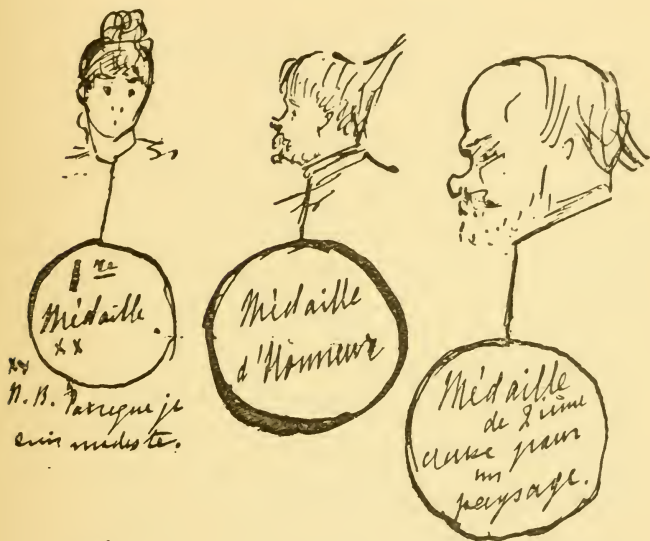 1re
Médaille
x x
xx
N. B. Parceque je
suis modeste.
Médaille
d'Honneur
Médaille
de 2ième
classe pour
un
paysage.